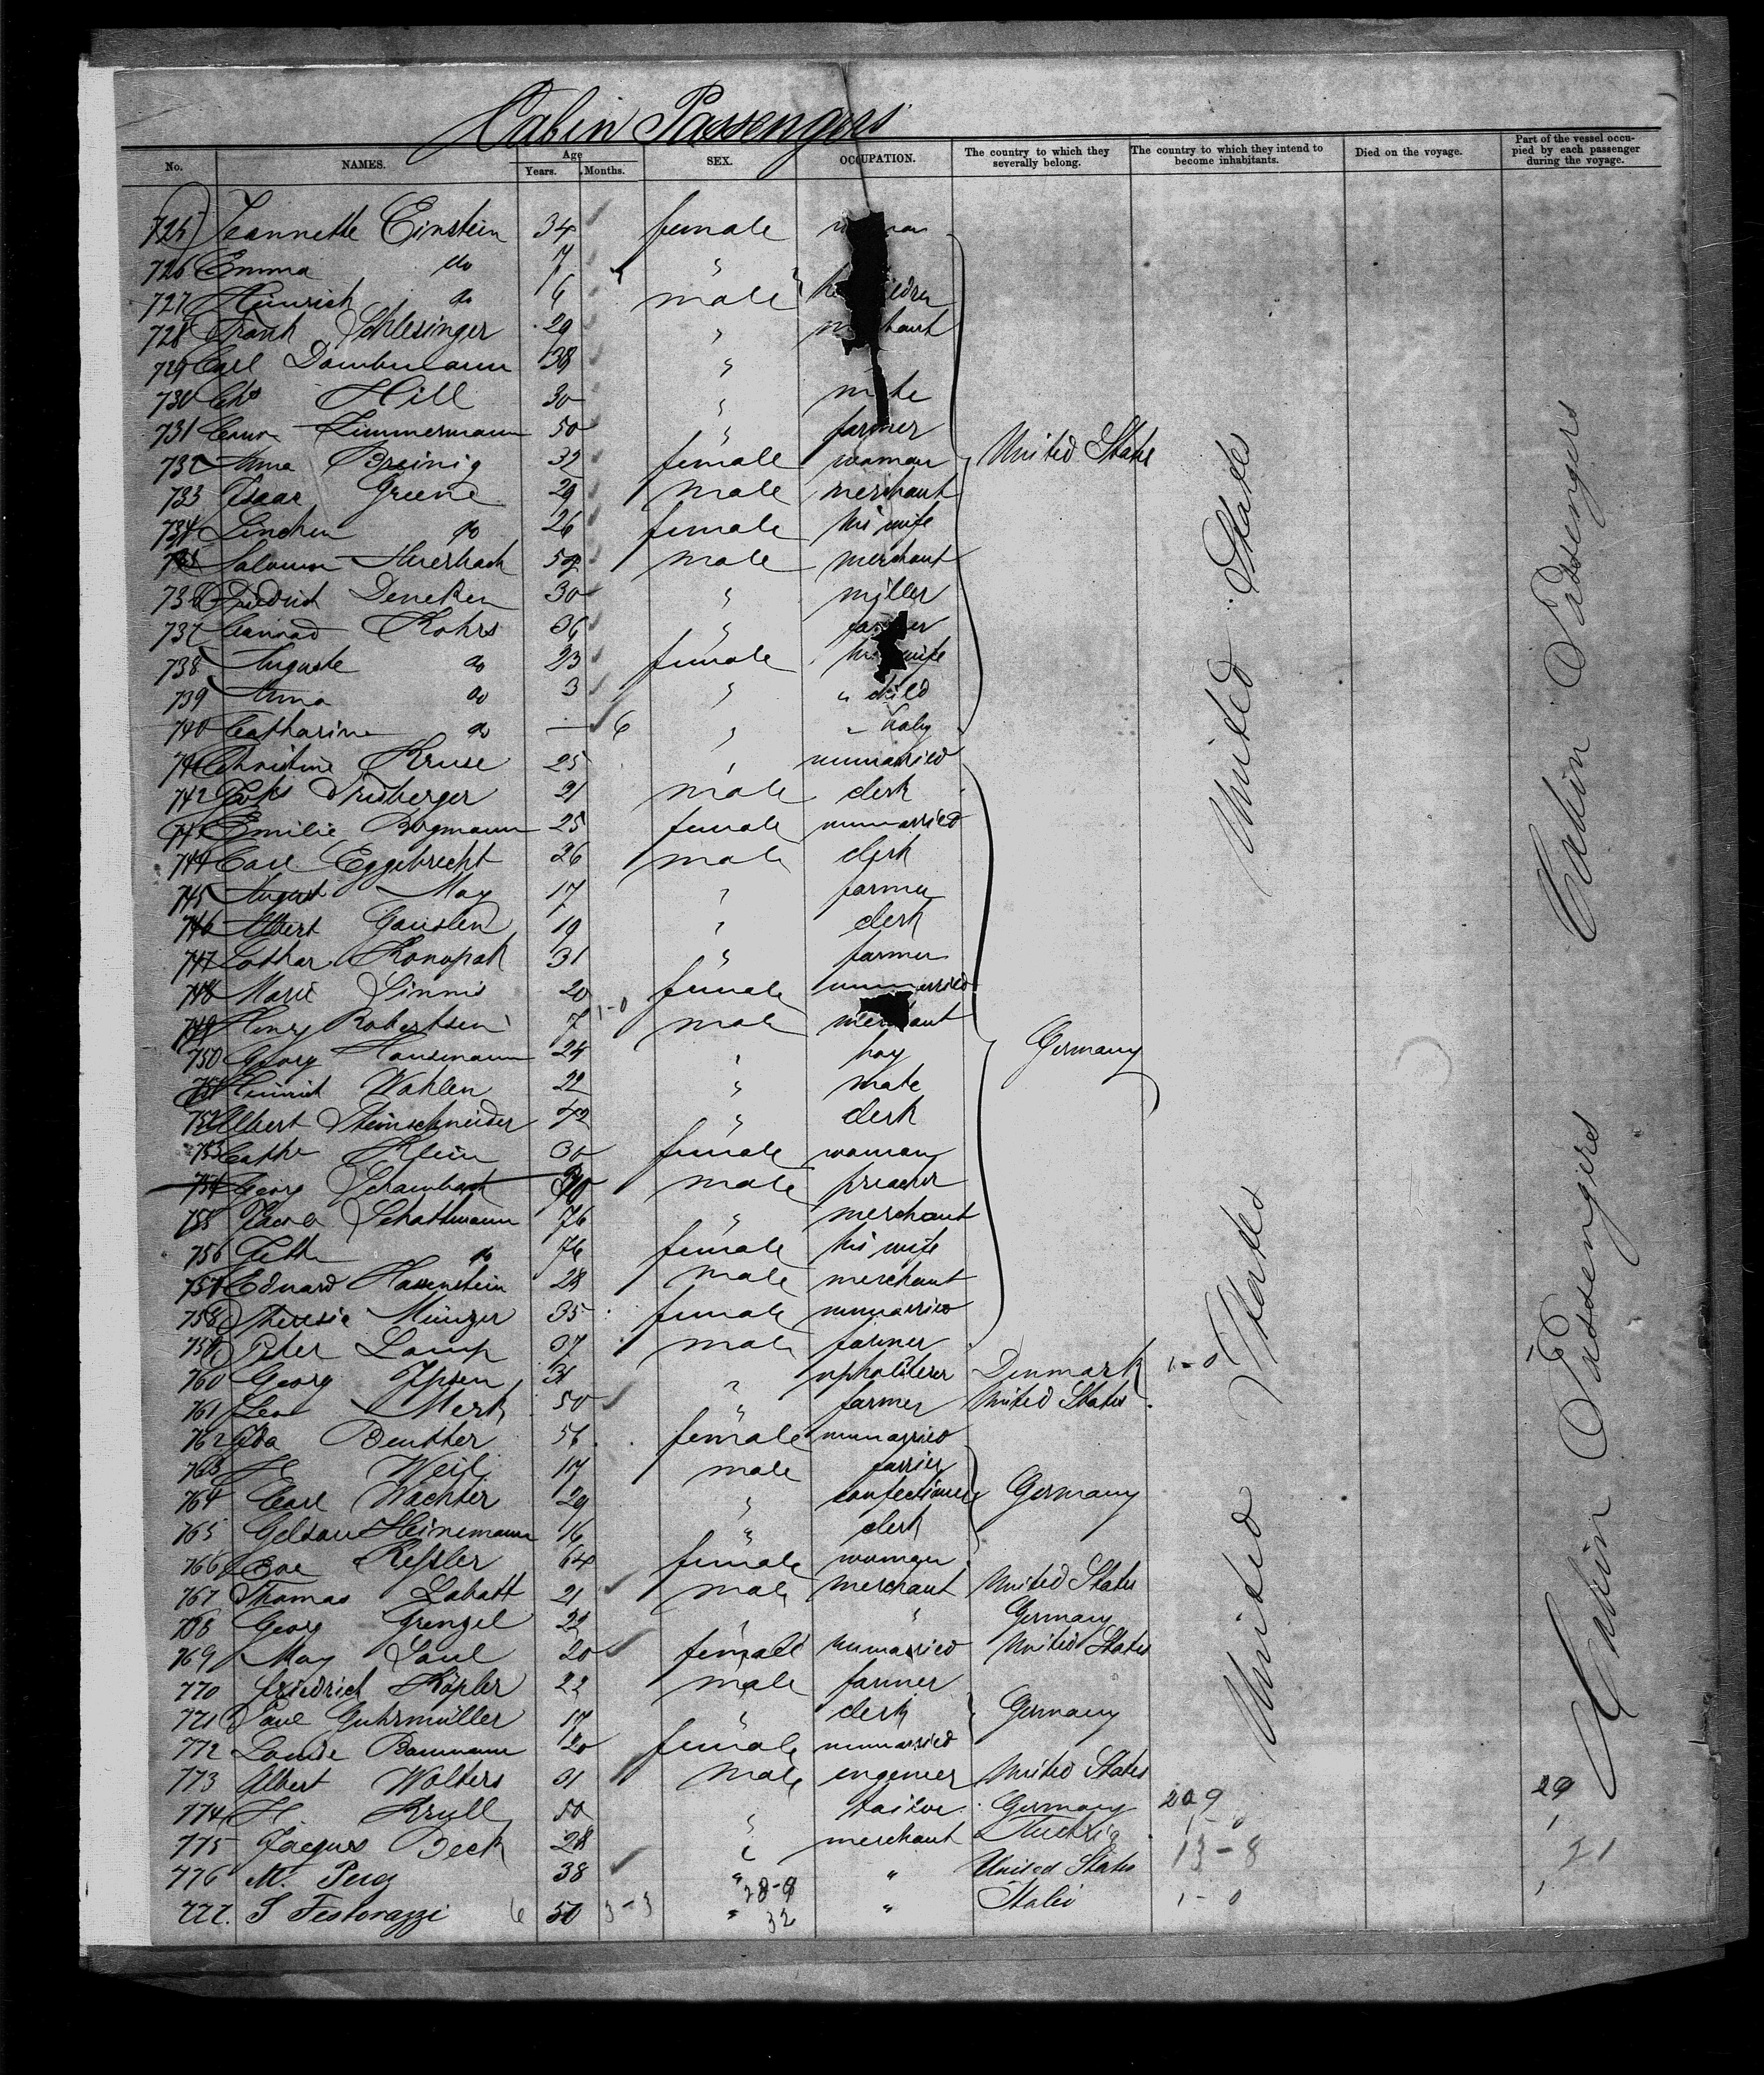 Cabin Passengers
No. NAMES. Age Years. Months. SEX. OCCUPATION. The country to which they severally belong. The country to which they intend to become inhabitants. Died on the voyage. Part of the vessel occupied by each passenger during the voyage.
725 Jeannette Einstein 34 female
726 Emma do 7 "
727 Heinrich do 6 male
728 Frank Schlesinger 29 "
729 Carl 38 "
730 Chs Hill 30 "
731 Zimmermann 50 " farmer
732 Anna Breinig 32 female woman United State
733 Isaac Greene 29 male merchant
734 Linchen do 26 female his wife
735 Salomon Auerbach 52 male merchant
736 Friedrich Deneken 30 " miller
737 Conrad Rohrs 36 " farmer
738 Auguste do 23 female his wife
739 Anna do 3 " " child
740 Catharine do — 6 " " baby
741 Christine Kruse 25 " unmarried
742 21 male clerk
743 Emilie Borgmann 25 female unmarried
744 Carl Eggebrecht 26 male clerk
745 August May 17 " farmer
746 Albert 19 " clerk
747 Lothar Konopak 31 " farmer
748 Marie Sinnis 20 female unmarried
749 Henry Robertsen 7 1-0 male merchant
750 Georg Hausmann 24 " boy Germany
751 Heinrich Wahlen 22 " mate
752 Albert Steinschneider 42 " clerk
753 Cathe Klein 30 female woman
754 Georg Schambach male preacher
755 Jacob Schattmann 76 " merchant
756 do 76 female his wife
757 Eduard Hassenstein 28 male merchant
758 Theresie Münzer 35 female unmarried
759 Peter Lamp 37 male farmer
760 Georg Ipsen 31 " upholsterer Denmark 1-0
761 Leo Merk 50 " farmer United States
762 Ida Beutther 56 female unmarried
763 H Weil 17 male farrier
764 Carl Wachter 29 " confectioner Germany
765 Heinemann 16 " clerk
766 Eva Kessler 64 female woman
767 Thomas Labatt 21 male merchant United States
768 Georg Grenzel 22 " " Germany
769 May Saul 20 female unmarried United States
770 Friedrich Köpler 22 male farmer
771 Paul Guhrmüller 17 " clerk Germany
772 Louise Baumann 20 female unmarried
773 Albert Wolters 31 male engenier United States
774 H. Krull 50 " tailor Germany 209 29
775 Jacques Beck 28 " merchant 1-0
776 M. 38 " " United States 13-8 21
777. S Festorazzi 6 50 3-3 " 32 " Italie 1-0
28-9
United States
United States
Cabin Passengers
Cabin Passengers